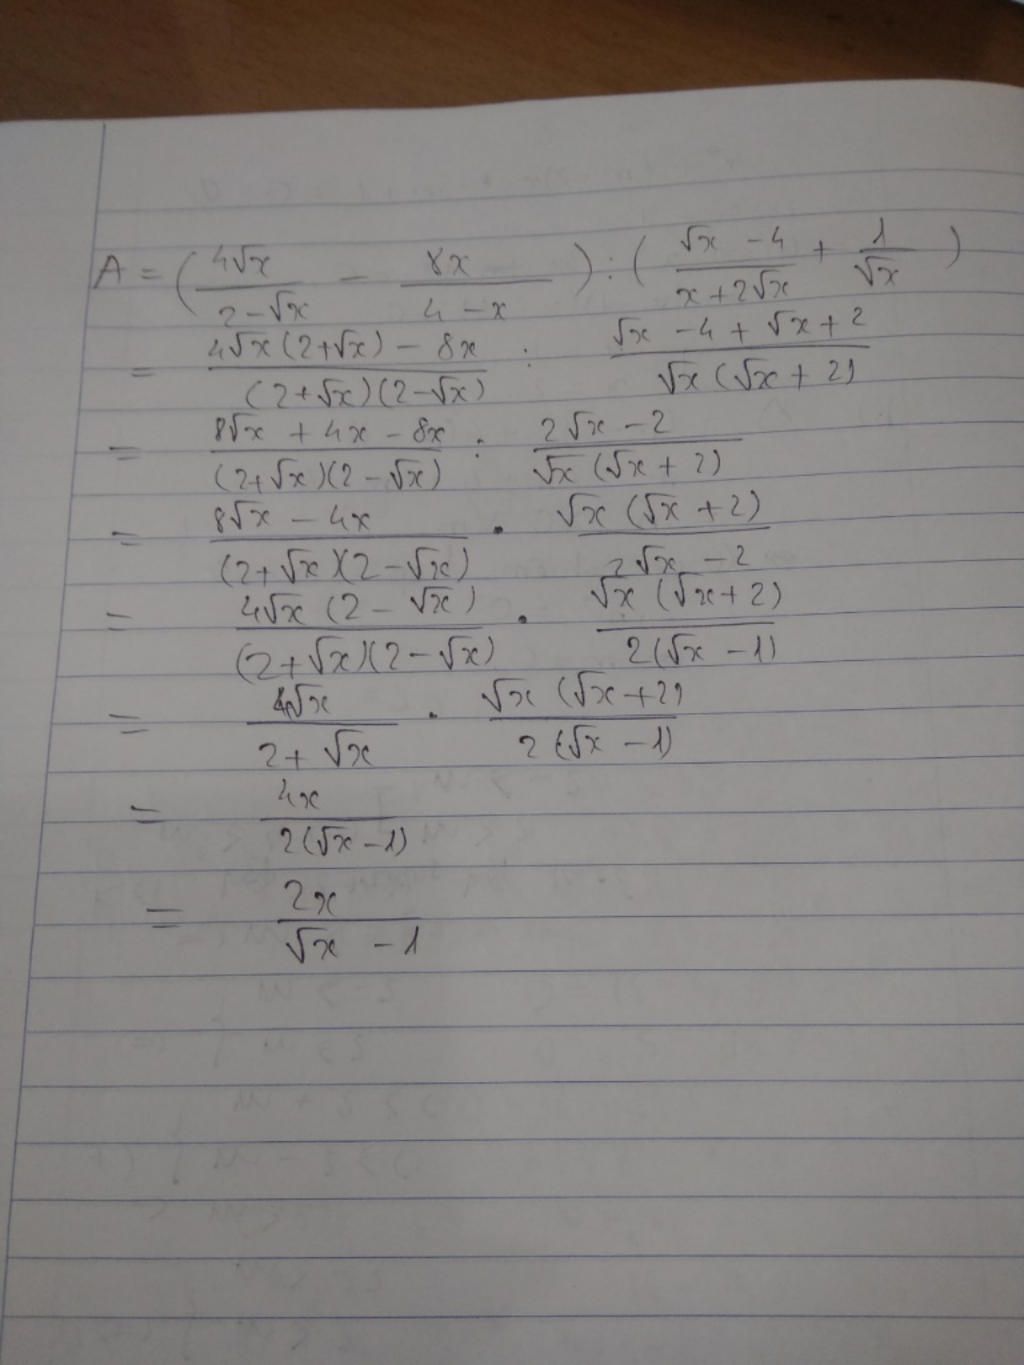 A = (4√x / 2-√x - 8x / 4-x) : (√x-4 / x+2√x + 1 / √x)
= 4√x(2+√x) - 8x / (2+√x)(2-√x) : √x-4+√x+2 / √x(√x+2)
= 8√x+4x-8x / (2+√x)(2-√x) : 2√x-2 / √x(√x+2)
= 8√x-4x / (2+√x)(2-√x) . √x(√x+2) / 2√x-2
= 4√x(2-√x) / (2+√x)(2-√x) . √x(√x+2) / 2(√x-1)
= 4√x / 2+√x . √x(√x+2) / 2(√x-1)
= 4x / 2(√x-1)
= 2x / √x-1